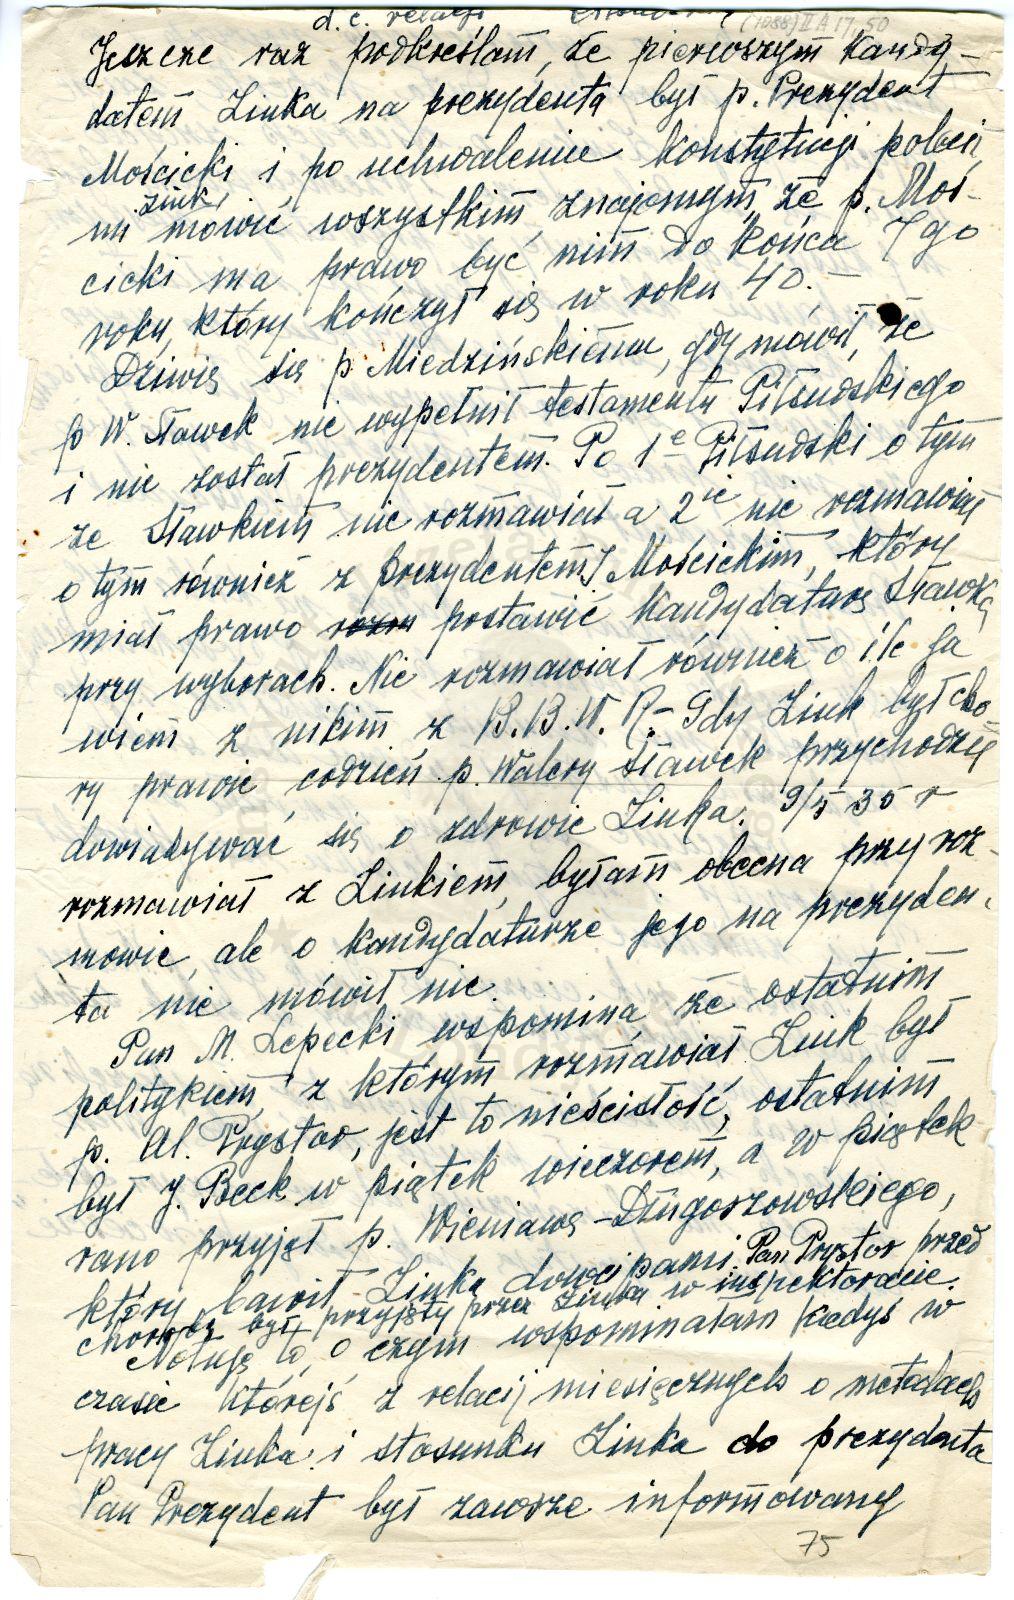 d. c. relacji (1088) II A 17, 50
Jeszcze raz podkreślam, że pierwszym kandy-
datem Ziuka na prezydenta był p. Prezydent
Mościcki i po uchwaleniu konstytucji polecił
mi Ziuk mówić wszystkim znajomym, że p. Moś-
cicki ma prawo być nim do końca 7go
roku, który kończył się w roku 40. –
Dziwię się p. Miedzińskiemu, gdy mówił, że
p W. Sławek nie wypełnił testamentu Piłsudskiego
i nie został prezydentem. Po 1e Piłsudski o tym
ze Sławkiem nie rozmawiał a 2ie nie rozmawiał
o tym również z prezydentem J Mościckim, który
miał prawo rozm postawić kandydaturę Sławka
przy wyborach. Nie rozmawiał również o ile ja
wiem z nikim z B.B.W.R – Gdy Ziuk był cho
ry prawie codzień p. Walery Sławek przychodził
dowiadywać się o zdrowie Ziuka. 9/5 35 r
rozmawiał z Ziukiem, byłam obecna przy roz-
mowie, ale o kandydaturze jego na prezyden-
ta nie mówił nic.
Pan M. Lepecki wspomina, że ostatnim
politykiem z którym rozmawiał Ziuk był
p. Al. Prystor, jest to nieścisłość, ostatnim
był J. Beck w piątek wieczorem, a w piątek
rano przyjął p. Wieniawę-Długoszowskiego,
który bawił Ziuka dowcipami. Pan Prystor przed
chorobą był przyjęty przez Ziuka w inspektoracie.
Notuję to, o czym wspominałam kiedyś w
czasie którejś z relacij miesięcznych o metodach
pracy Ziuka i stosunku Ziuka do prezydenta
Pan Prezydent był zawsze informowany
75